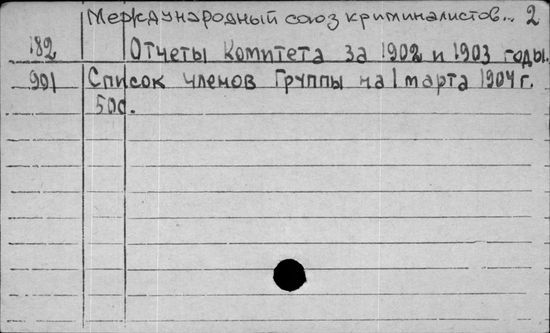 Международный союз криминалистов... 2
182 Отчеты Комитета за 1902 и 1903 годы.
991 Список членов Группы на 1 марта 1904 г.
50с.